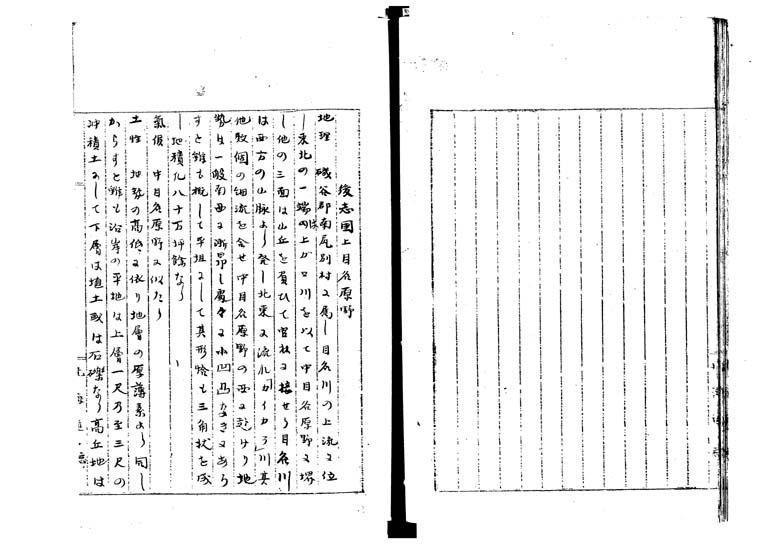 後志國上目名原野
地理　磯谷郡南尻別村ニ属シ目名川ノ上流ニ位
シ東北ノ一端ハ上カロ川ヲ以テ中目名原野ニ堺
シ他ノ三面ハ山丘ヲ負ヒテ官林ニ接セリ目名川
ハ西方ノ山脈ヨリ発シ北東ニ流レ「カイカラ」川其
他数個ノ細流ヲ合セ中目名原野ノ西ニ注ケリ地
勢ハ一般南西ニ漸昂シ處々ニ小凹凸ナキニアラ
スト雖モ概シテ平坦ニシテ其形恰モ三角状ヲ成
シ地積凡八十万坪許ナリ
氣候　中目名原野ニ似タリ
土性　地勢ノ高低ニ依リ地層ノ厚薄素ヨリ同シ
カラスト雖モ沿岸ノ平地ハ上層一尺乃至三尺ノ
沖積土ニシテ下層ハ埴土或ハ石礫ナリ高丘地ハ